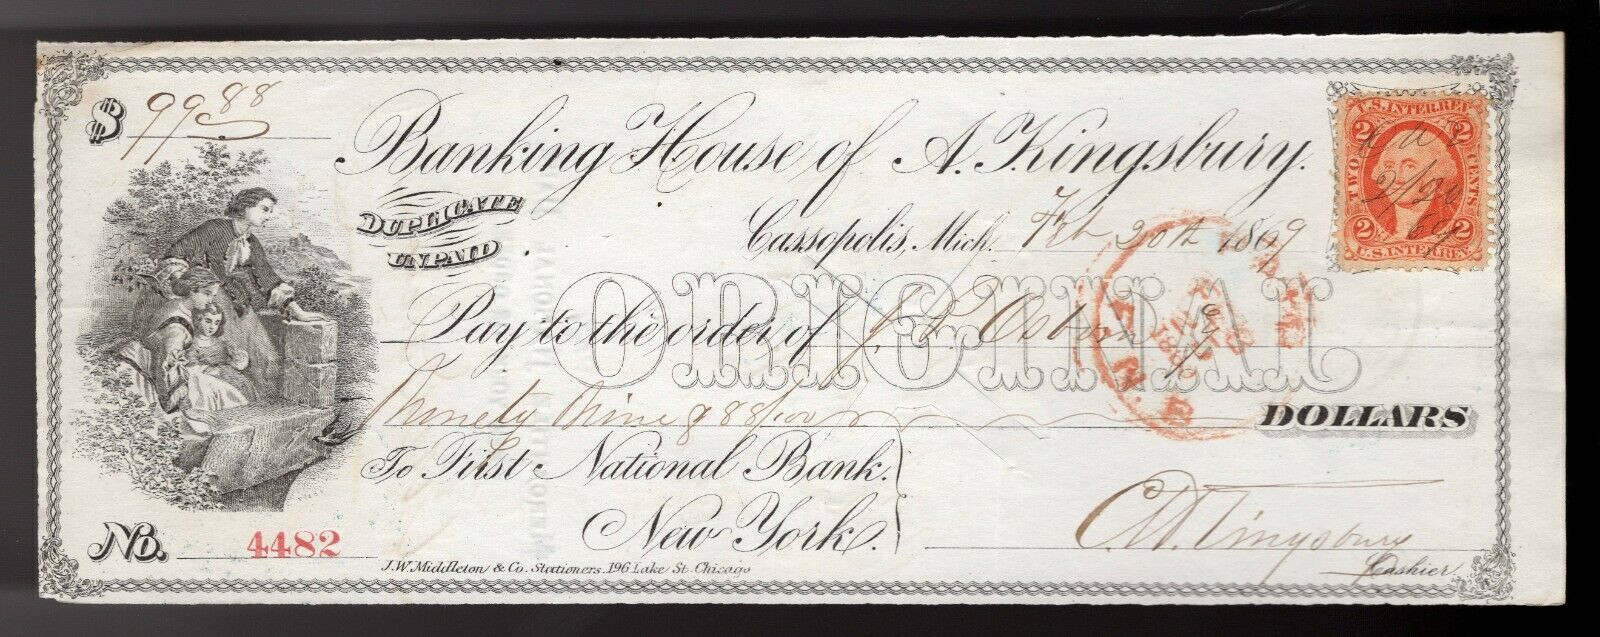 $ 99 88
Banking House of A. Kingsbury.
DUPLICATE
UNPAID
Cassopolis, Mich. Feb 20th 1869
ORIGINAL
Pay to the order of J. P. Osborn
Ninety Nine & 88/100 DOLLARS
To First National Bank.
New York.
Kingsbury
Cashier
No. 4482
J.W. Middleton & Co. Stationers. 196 Lake St. Chicago
U.S. INTER. REV.
2 2
TWO CENTS
2/20
69
2 2
U.S. INTER. REV.